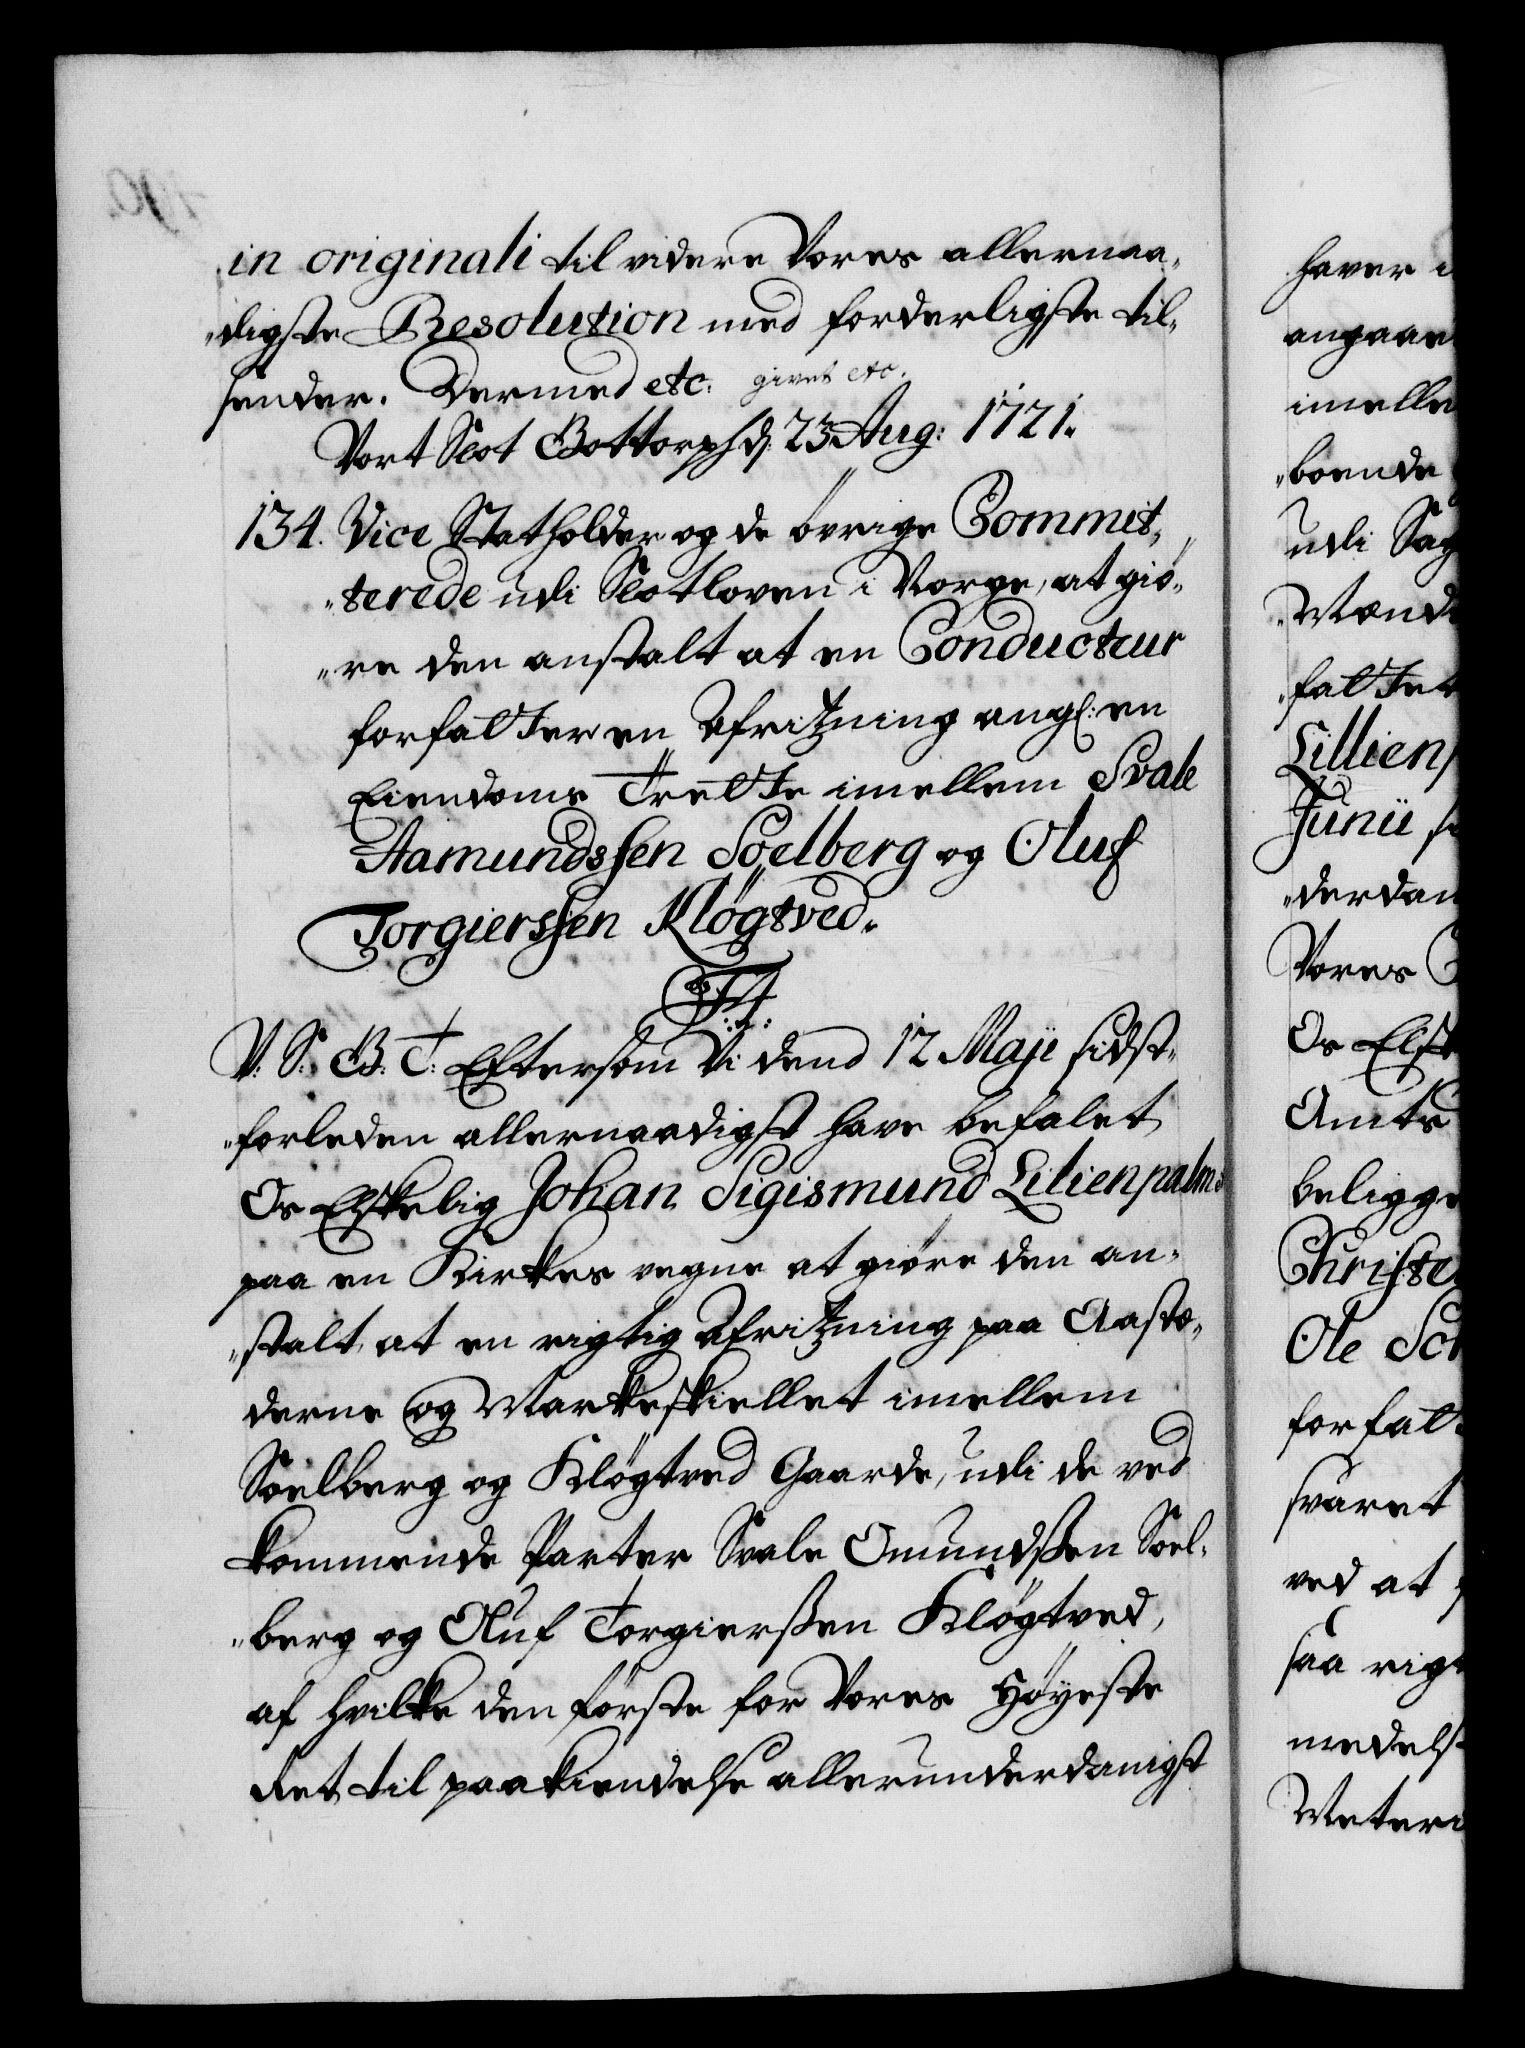 in originali til videre Vores allernaa„
„digste Resolution med forderligste til„
sender. Dermed etc: givet etc.
Vort Slot Gottorph d: 23 Aug: 1721.
134. Vice Statholder og de øvrige Commit„
„terede udi Slotloven i Norge, at giø„
„re den anstalt at en Conducteur
forfatter en Afritzning ang: en
Eiendoms Trette imellem Svale
Aamundssen Soelberg og Oluf
Torgierssen Kløgtved.
V: S: G: T: Eftersom Vi dend 12 Maji sidst„
„forleden allernaadigst have befalet
Os Elskelig Johan Sigismund Lilienpalm
paa en Kirkes vegne at giøre den an„
„stalt, at en rigtig Afritzning paa Aastæ„
derne og Markeskiellet imellem
Soelberg og Kløgtved Gaarde, udi de ved
kommende Parter Svale Omundsen Soel„
„berg og Oluf Torgierssen Kløgtved,
af hvilke den første for Vores Høyeste
Ret til paakiendelse allerunderdanigst
haver i
angaae
imelle
„boende
udi Sag
Mænd
„fatter
Lilliens
Junii s
„derdan
Vores
Os Elsk
Amts
beligge
Christe
Ole Sch
forfat
svaret
ved at
saa rig
medels
Meteri